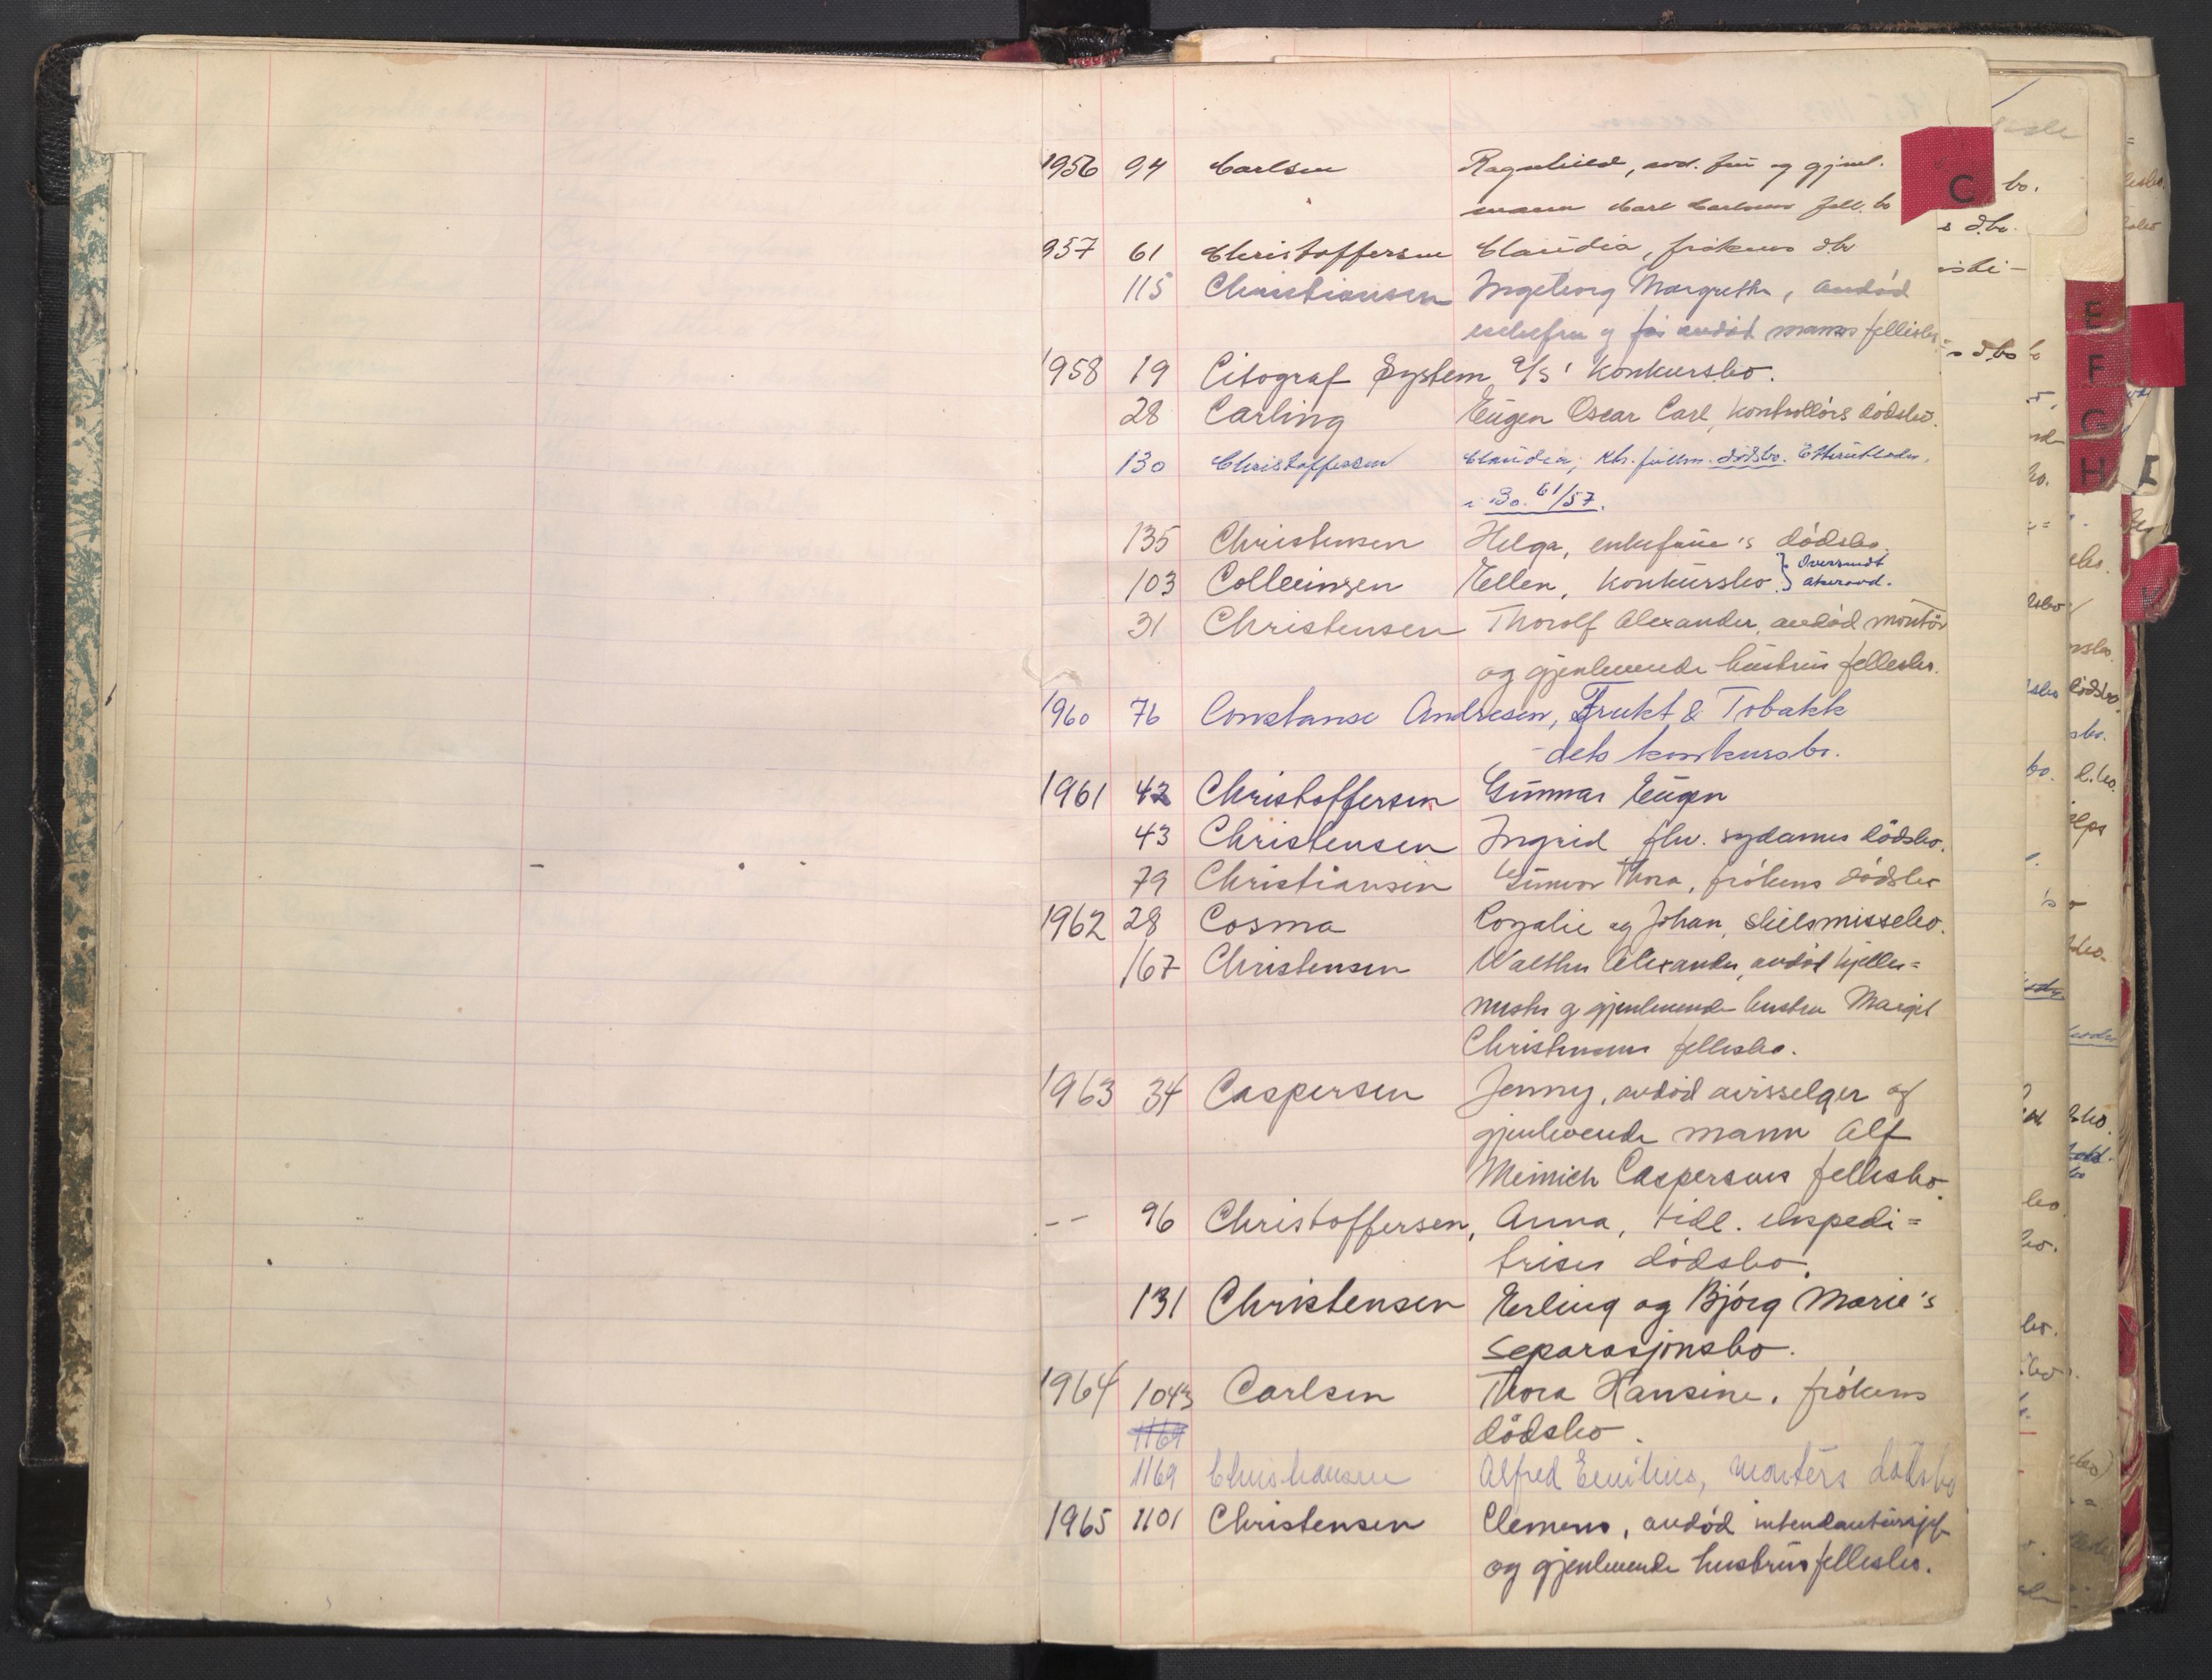 1956 94 Carlsen Ragnhild, avd. fru og gjenl.
mann Karl Carlsens fell. bo
C
957 61 Christoffersen Claudia, frøkens dbo
115 Christiansen Ingeborg Margrethe, avdød
enkefru og før avdød manns fellesbo
1958 19 Citograf System A/S' Konkursbo.
28 Carling Eugen Oscar Carl, Kontrollørs dødsbo.
130 Christoffersen Claudia, dødsbo.
i Bo. 61/57.
135 Christensen Helga, enkefrue's dødsbo.
103 Colleinsen Ellen, Konkursbo. } Oversendt
Akersovd.
31 Christensen Thorolf Alexander, avdød montør
og gjenlevende hustrus fellesbo.
1960 76 Constanse Andresen, Frukt & Tobakk
- dets konkursbo.
1961 42 Christoffersen Gunnar Eugen
43 Christensen Ingrid fhv. sydames dødsbo.
79 Christiansen Gunvor Thora, frøkens dødsbo
1962 28 Cosma Rozalie og Johan, skilsmissebo.
167 Christensen Walther Alexander, avdød kjeller=
mester og gjenlevende hustru Margit
Christensens fellesbo.
1963 34 Caspersen Jenny, avdød avisselger og
gjenlevende mann Alf
Meinich Caspersens fellesbo.
-- 96 Christoffersen, Anna, tidl. ekspedi=
trises dødsbo.
131 Christensen Erling og Bjørg Marie's
separasjonsbo.
1964 1043 Carlsen Thora Hansine, frøkens
1169 dødsbo.
1169 Christiansen Alfred Emilius, montørs dødsbo
1965 1101 Christensen Clemens, avdød intendantursjef
og gjenlevende hustrus fellesbo.
E
F
G
H
I
K